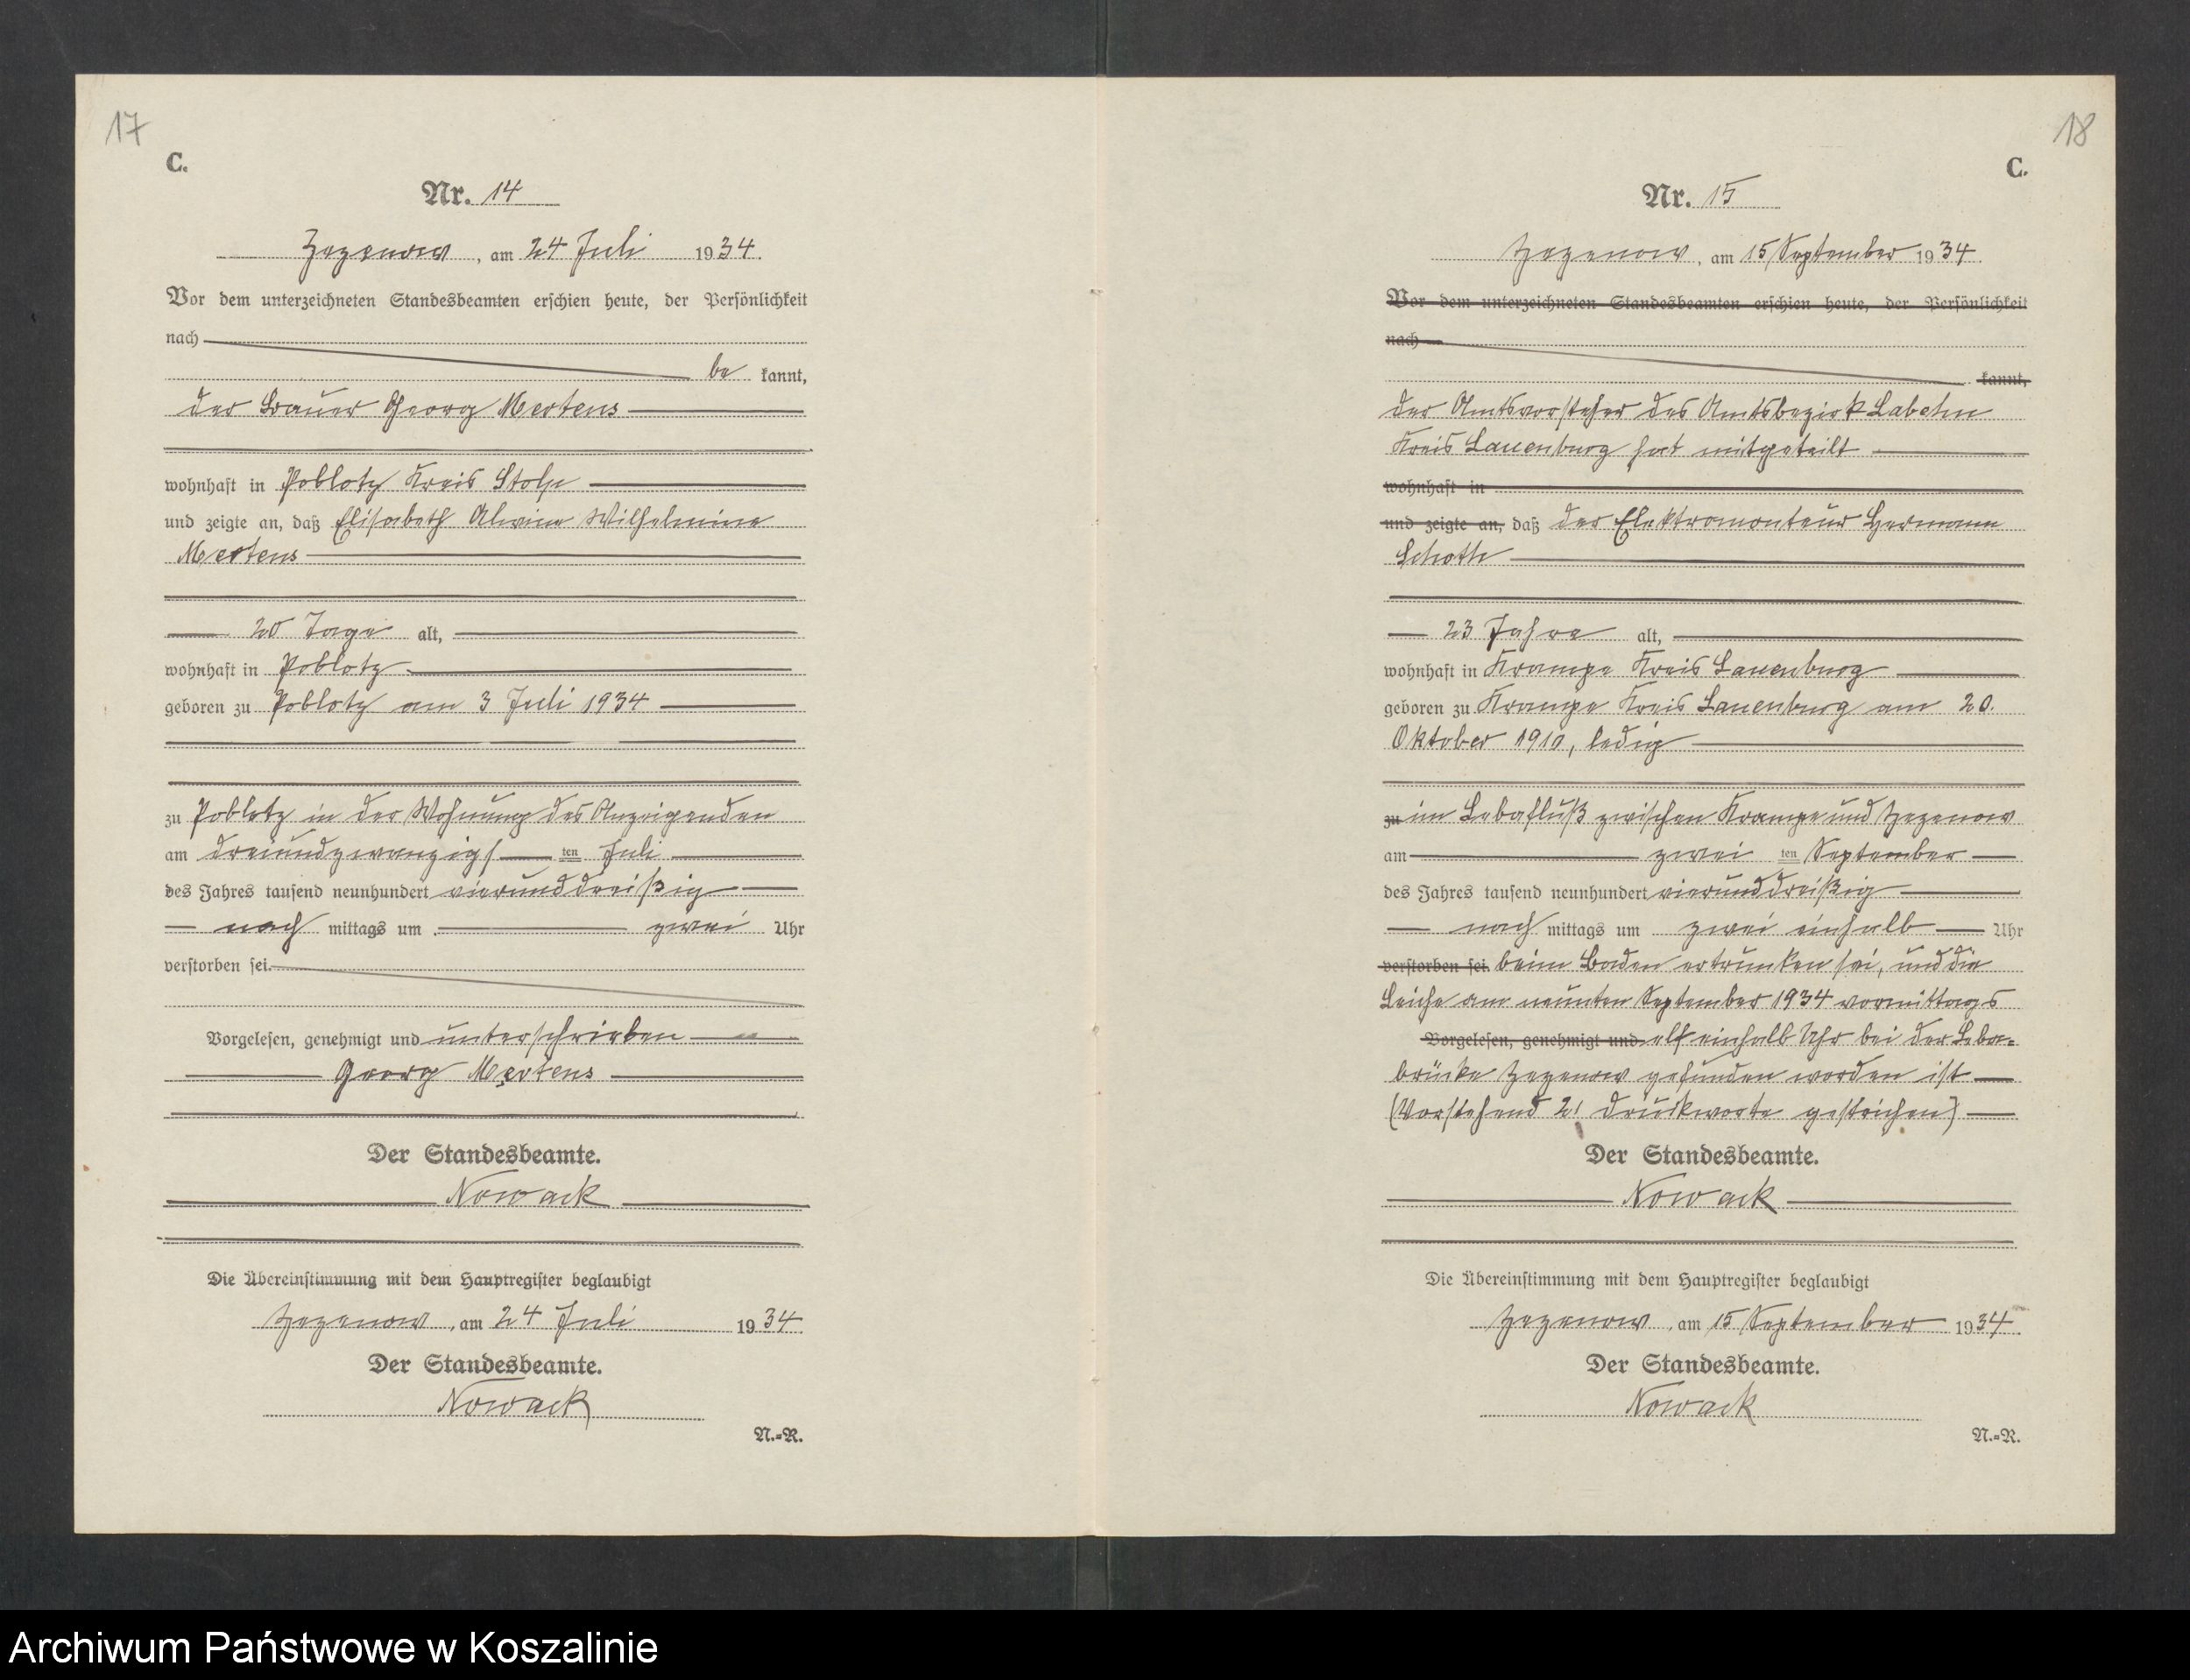 17
C.
Nr. 14
Zezenow, am 24 Juli 1934.
Vor dem unterzeichneten Standesbeamten erschien heute, der Persönlichkeit
nach
be kannt,
der Bauer Georg Mertens
wohnhaft in Poblotz Kreis Stolp
und zeigte an, daß Elisabeth Alwine Wilhelmine
Mertens
20 Tage alt,
wohnhaft in Poblotz
geboren zu Poblotz am 3 Juli 1934
zu Poblotz in der Wohnung des Anzeigenden
am dreiundzwanzigs ten Juli
des Jahres tausend neunhundert vierunddreißig
nach mittags um zwei Uhr
verstorben sei.
Vorgelesen, genehmigt und unterschrieben
Georg Mertens
Der Standesbeamte.
Nowack
Die Übereinstimmung mit dem Hauptregister beglaubigt
Zezenow, am 24 Juli 1934.
Der Standesbeamte.
Nowack
N.=R.
18
C.
Nr. 15
Zezenow, am 15 September 1934.
Vor dem unterzeichneten Standesbeamten erschien heute, der Persönlichkeit
nach
kannt,
der Amtsvorsteher des Amtsbezirk Labehn
Kreis Lauenburg hat mitgeteilt
wohnhaft in
und zeigte an, daß der Elektromonteur Hermann
23 Jahre alt,
wohnhaft in Krampe Kreis Lauenburg
geboren zu Krampe Kreis Lauenburg am 20.
Oktober 1910, ledig
zu im Lebafluß zwischen Krampe und Zezenow
am zwei ten September
des Jahres tausend neunhundert vierunddreißig
nach mittags um zwei einhalb Uhr
verstorben sei. beim Baden ertrunken sei, und die
Leiche am neunten September 1934 vormittags
Vorgelesen, genehmigt und elf einhalb Uhr bei der Leba=
brücke Zezenow gefunden worden ist
(Vorstehend 21 Druckworte gestrichen)
Der Standesbeamte.
Nowack
Die Übereinstimmung mit dem Hauptregister beglaubigt
Zezenow, am 15 September 1934.
Der Standesbeamte.
Nowack
N.=R.
Archiwum Państwowe w Koszalinie